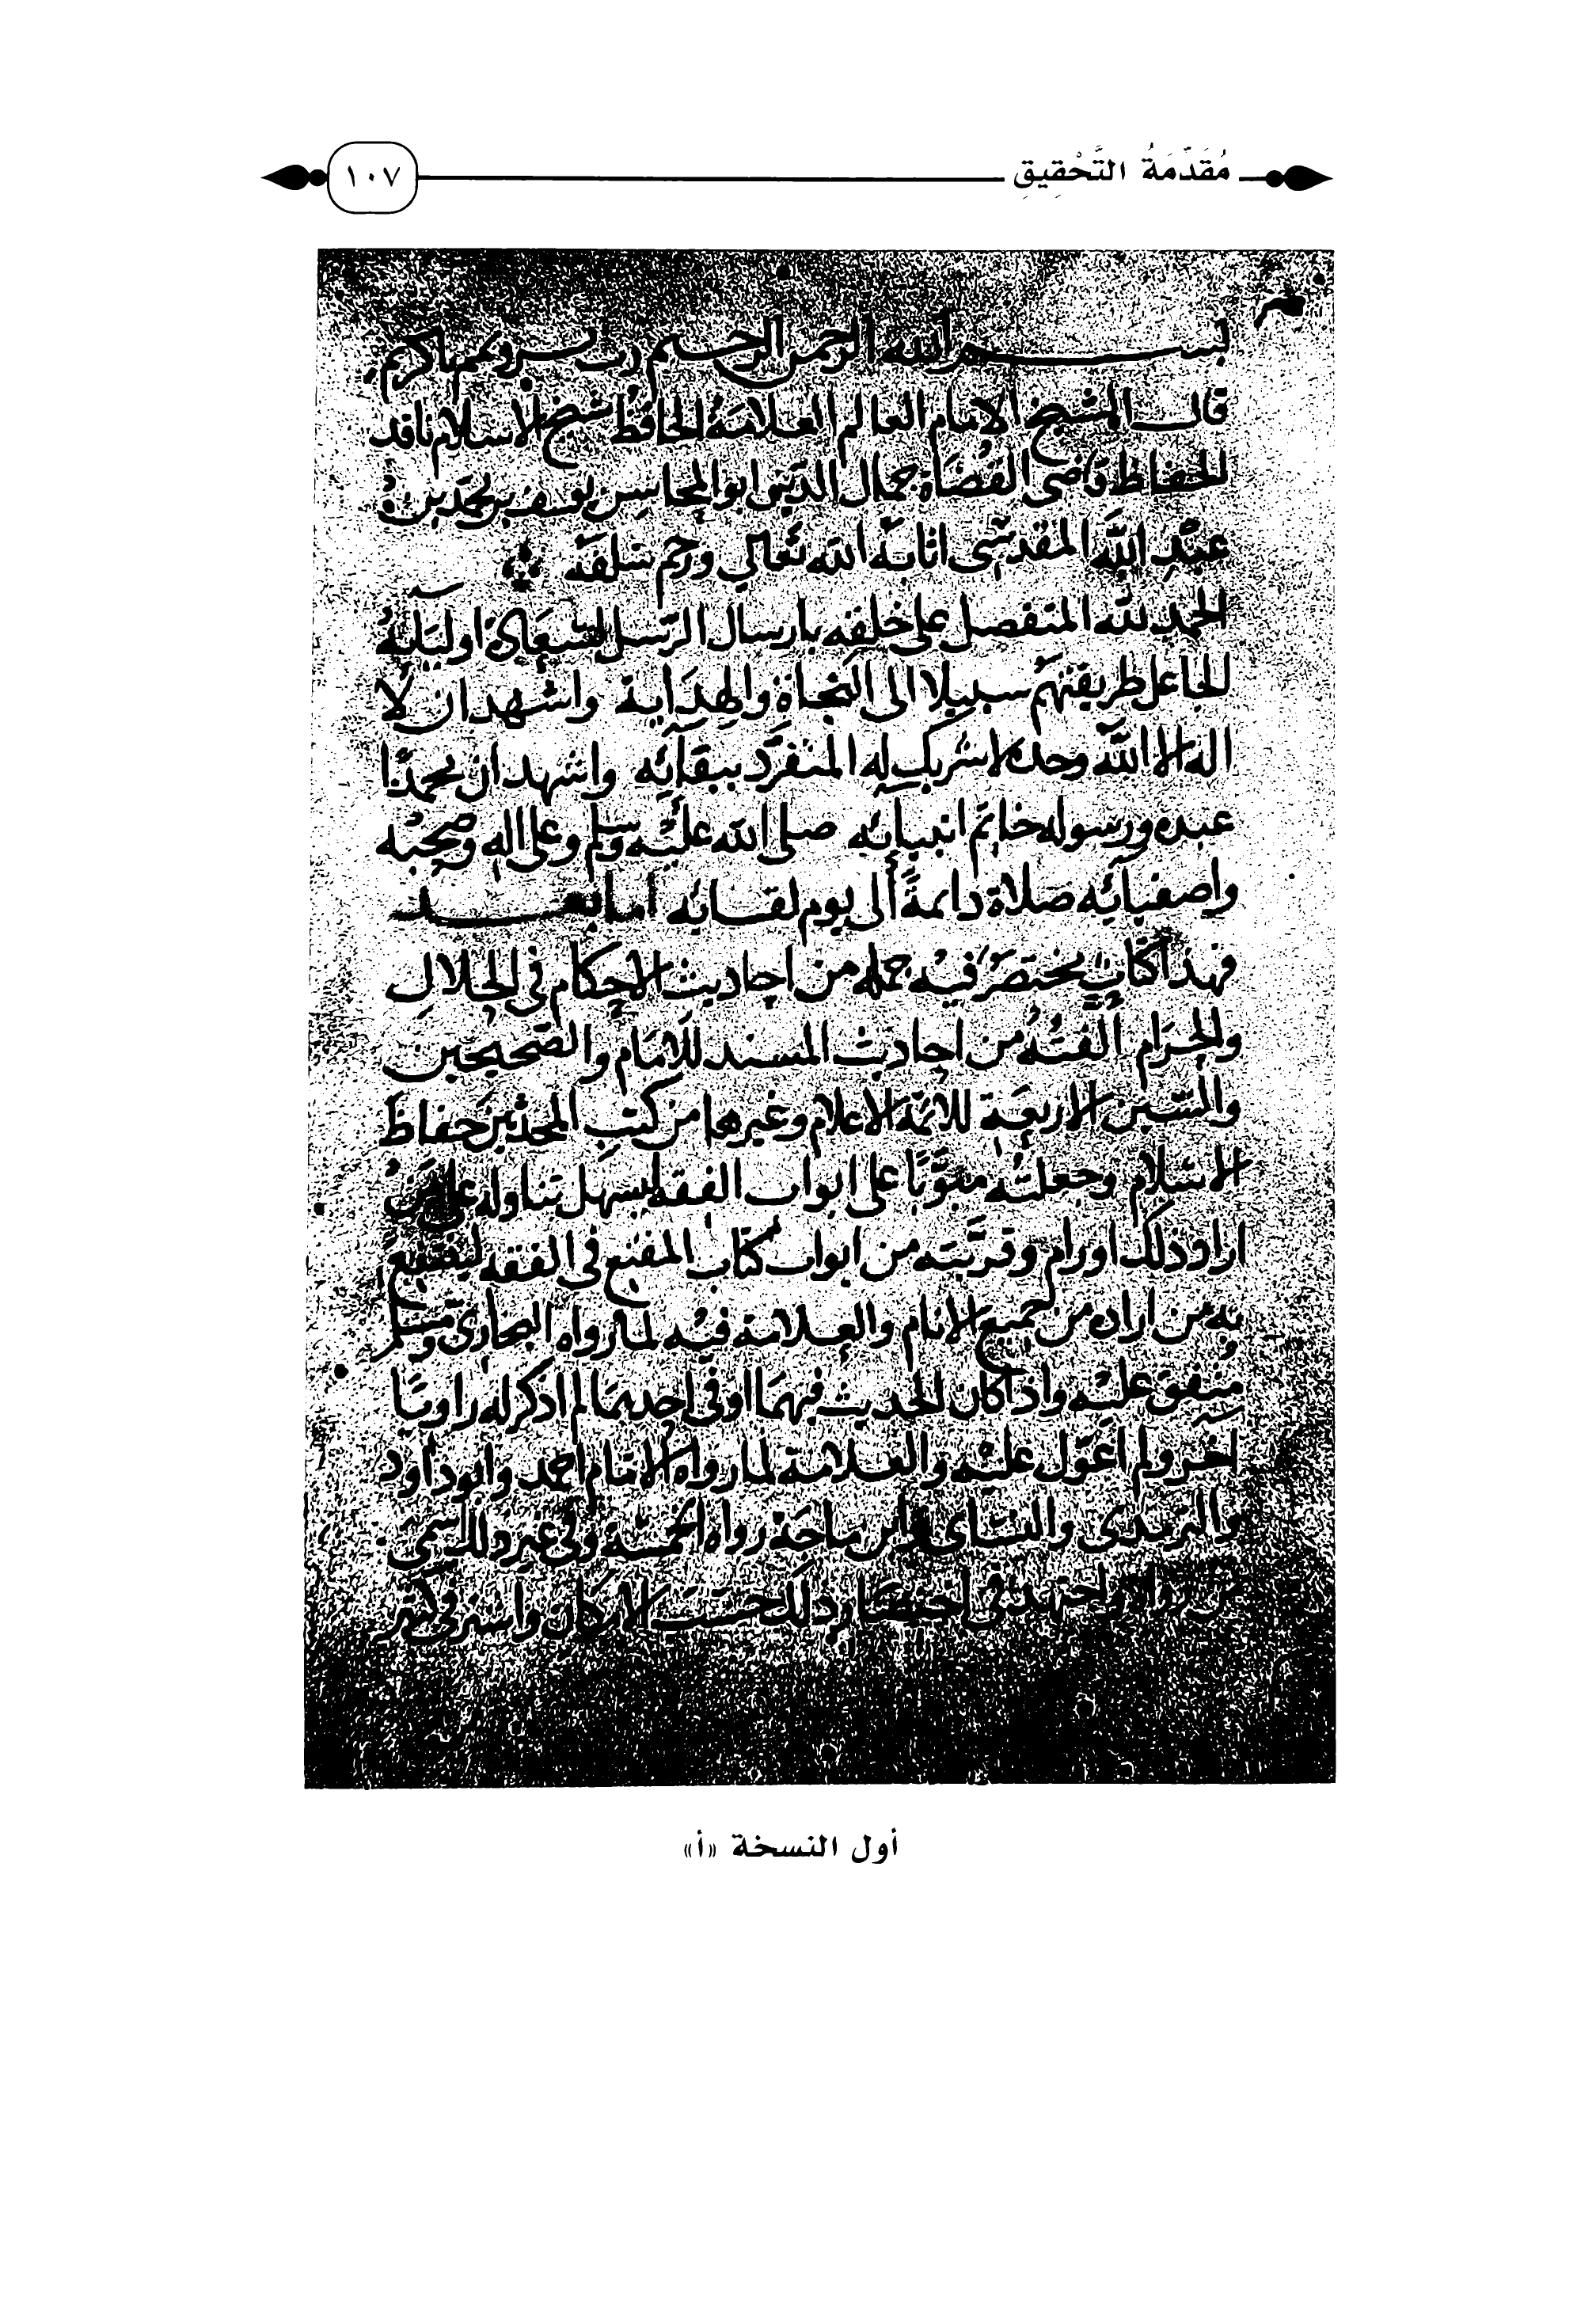 مُقَدِّمَةُ التَّحْقِيقِ
١٠٧
بسم الله الرحمن الرحيم رب يسر وتمم يا كريم
قال الشيخ الامام العالم العلامة الحافظ شيخ الاسلام ناقد
الحفاظ قاضى القضاة جمال الدين ابو المحاسن يوسف بن محمد بن
عبد الله المقدسى اثابه الله تعالى ورحم سلفه
الحمد لله المتفضل على خلقه بارسال الرسل
الجاعل طريقتهم سبيلا الى النجاة والهداية واشهد ان لا
اله الا الله وحده لا شريك له المنفرد ببقائه واشهد ان محمدًا
عبده ورسوله خاتم انبيائه صلى الله عليه وسلم وعلى اله وصحبه
واصفيائه صلاة دائمةً الى يوم لقائه اما بعد
فهذا كتاب مختصر فيه جملة من احاديث الاحكام فى الحلال
والحرام الفته من احاديث المسند للامام والصحيحين
والسنن الاربعة للائمة الاعلام وغيرها من كتب المحدثين حفاظ
الاسلام وجعلته مبوّبًا على ابواب الفقه ليسهل تناوله على من
اراد ذلك او رام وقربته من ابواب كتاب المقنع فى الفقه لينتفع
به من اراده من جميع الانام والعلامة فيه لما رواه البخارى ومسلم
متفق عليه واذا كان الحديث فيهما او فى احدهما لم اذكر له راويًا
اخر ولم اعوّل عليه والعلامة لما رواه الامام احمد وابو داود
والترمذى والنساى وابن ماجة رواه الخمسة وفى غير ذلك اسمى
من رواه واجتهدت فى اختصار ذلك حسب الامكان
أول النسخة «أ»